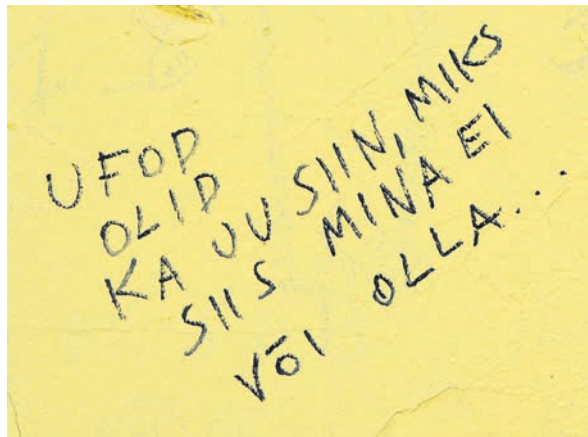 UFOD
OLID
KA JU SIIN, MIKS
SIIS MINA EI
VÕI OLLA...